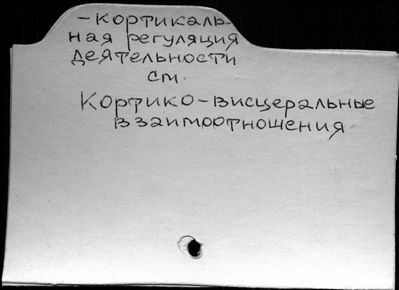 - кортикаль-
ная регуляция
деятельности
см.
Кортико-висцеральные
взаимоотношения